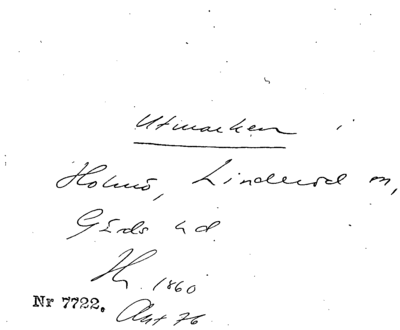 Utmarken i
Holmö, Linderöd sn,
Gärds hd
1860
Nr 7722. Akt 76